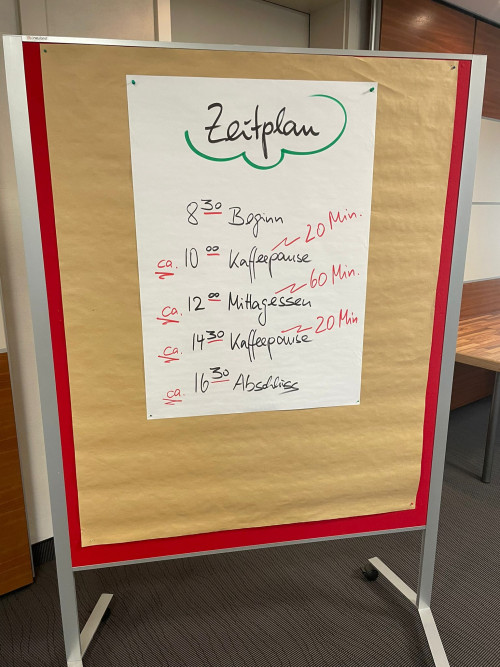 Zeitplan
8 30 Beginn
20 Min.
ca. 10 00 Kaffeepause
60 Min.
ca. 12 00 Mittagessen
20 Min
ca. 14 30 Kaffeepause
ca. 16 30 Abschluss